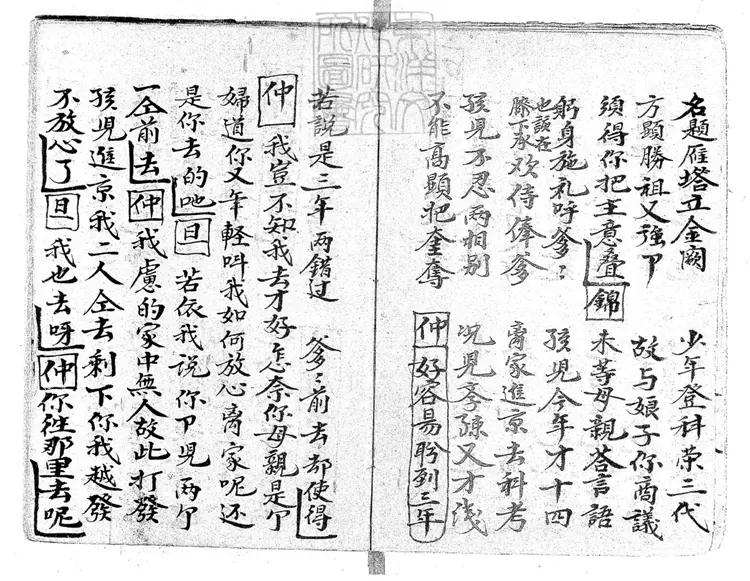 名題雁塔立金闕　少年登科榮三代
方顯勝祖又強卩　故与娘子你商議
須得你把主意叠　錦　未等母親答言語
躬身施礼呼爹〻　孩児今年才十四
也該在膝下承欢侍俸爹　离家進京去科考
孩児不忍两相别　况児李疎又才浅
不能高顯把奎奪　仲　好容易盼到三年
若說是三年两錯过　爹〻前去却使得
仲　我豈不知我去才好怎奈你母親是卩
婦道你又年軽叫我如何放心离家呢还
是你去的吔　旦　若依我說你卩児两个
一仝前去　仲　我慮的家中無人故此打發
孩児進京我二人仝去剩下你我越發
不放心了　旦　我也去呀　仲　你徃那里去呢